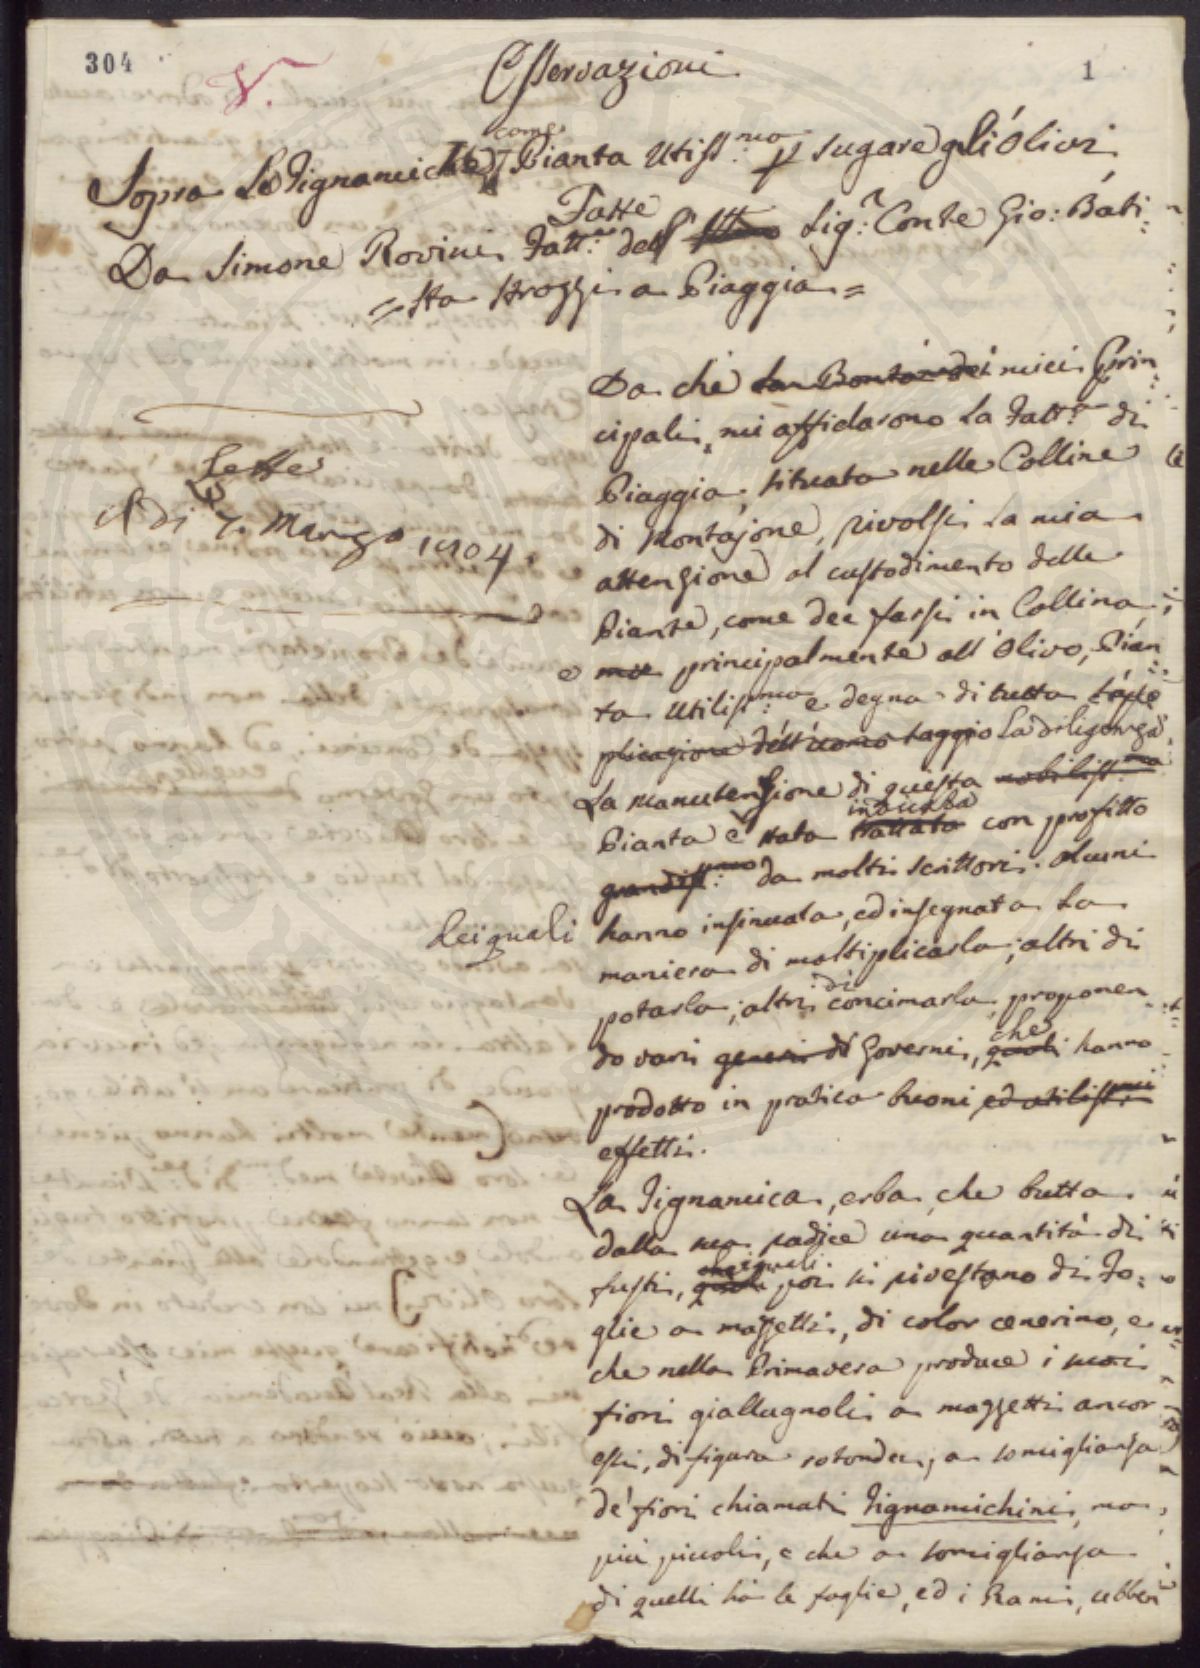 304
V.
Osservazioni
1
come
Sopra La Tignamica Pianta Utiliss.ma p sugare gli Olivi
Fatte
Da Simone Rovini Fatt.re dell' Ill.mo Sig.r Conte Gio: Bati=
=sta Strozzi a Piaggia=
Da che la Bontà dei miei Prin=
cipali, mi affidarono la Fatt.a di
Piaggia, situata nelle Colline
di Montajone, rivolsi la mia
attenzione al custodimento delle
Piante, come dee farsi in Collina,
e principalmente all'Olivo, Pian=
ta utiliss.ma e degna di tutta l'ap=
plicazione dell'uomo saggio La diligenza
La manutenzione di questa nobiliss.ma
inculcata
Pianta è stata trattata con profitto
grandiss.mo da molti scrittori. Alcuni
dei quali
hanno insinuata, ed insegnata la
maniera di moltiplicarla; altri di
potarla; altri di concimarla, proponen=
do varj generi di Governi, quali che hanno
prodotto in pratica buoni ed utiliss.mi
effetti.
La Tignamica, erba, che butta
dalla sua radice una quantità di
fusti, quali poi si rivestono di fo=
glie a mazzetti, di color cenerino, e
che nella Primavera produce i suoi
fiori giallugnoli a mazzetti ancor
essi, di figura rotonda, a somiglianza
de' fiori chiamati Tignamichini, ma
più piccoli, e che a somiglianza
di quelli hà le foglie, ed i Rami, ebben
Lette
A dì 7. Marzo 1804.